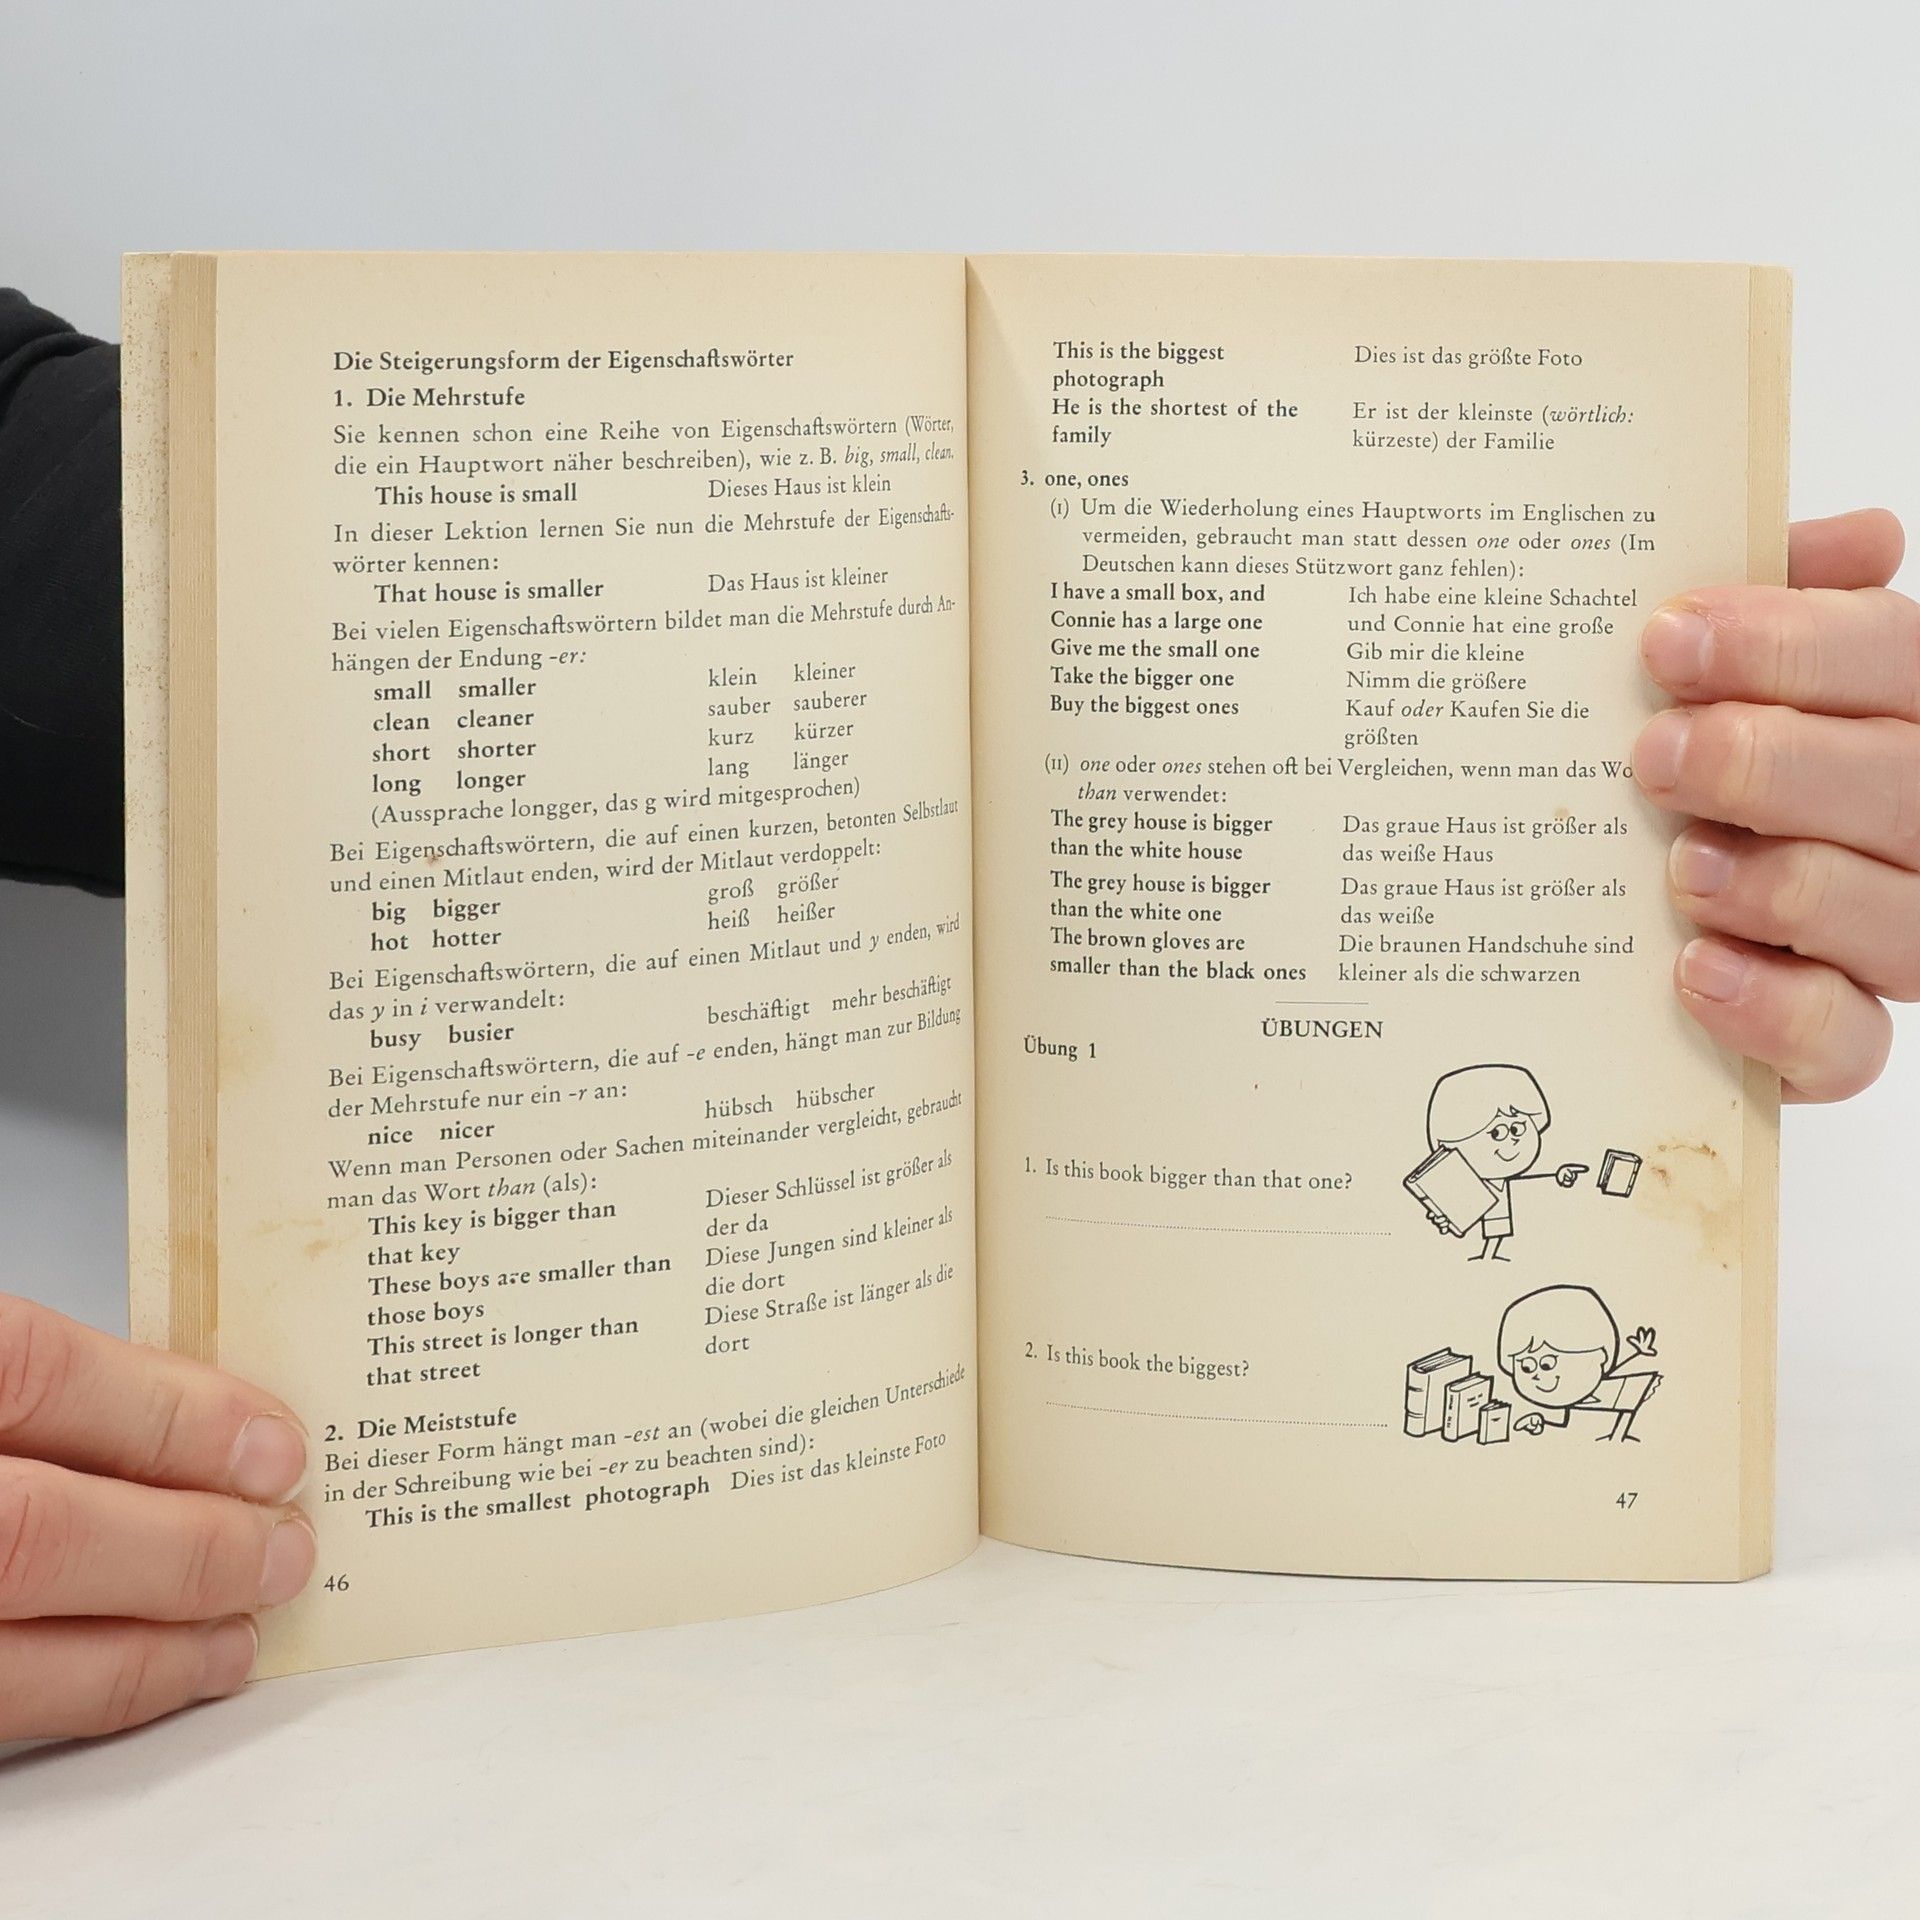 Die Steigerungsform der Eigenschaftswörter
1. Die Mehrstufe
Sie kennen schon eine Reihe von Eigenschaftswörtern (Wörter,
die ein Hauptwort näher beschreiben), wie z. B. big, small, clean.
This house is small Dieses Haus ist klein
In dieser Lektion lernen Sie nun die Mehrstufe der Eigenschafts-
wörter kennen:
That house is smaller Das Haus ist kleiner
Bei vielen Eigenschaftswörtern bildet man die Mehrstufe durch An-
hängen der Endung -er:
small smaller klein kleiner
clean cleaner sauber sauberer
short shorter kurz kürzer
long longer lang länger
(Aussprache longger, das g wird mitgesprochen)
Bei Eigenschaftswörtern, die auf einen kurzen, betonten Selbstlaut
und einen Mitlaut enden, wird der Mitlaut verdoppelt:
big bigger groß größer
hot hotter heiß heißer
Bei Eigenschaftswörtern, die auf einen Mitlaut und y enden, wird
das y in i verwandelt:
busy busier beschäftigt mehr beschäftigt
Bei Eigenschaftswörtern, die auf -e enden, hängt man zur Bildung
der Mehrstufe nur ein -r an:
nice nicer hübsch hübscher
Wenn man Personen oder Sachen miteinander vergleicht, gebraucht
man das Wort than (als):
This key is bigger than Dieser Schlüssel ist größer als
that key der da
These boys are smaller than Diese Jungen sind kleiner als
those boys die dort
This street is longer than Diese Straße ist länger als die
that street dort
2. Die Meiststufe
Bei dieser Form hängt man -est an (wobei die gleichen Unterschiede
in der Schreibung wie bei -er zu beachten sind):
This is the smallest photograph Dies ist das kleinste Foto
46
This is the biggest Dies ist das größte Foto
photograph
He is the shortest of the Er ist der kleinste (wörtlich:
family kürzeste) der Familie
3. one, ones
(I) Um die Wiederholung eines Hauptworts im Englischen zu
vermeiden, gebraucht man statt dessen one oder ones (Im
Deutschen kann dieses Stützwort ganz fehlen):
I have a small box, and Ich habe eine kleine Schachtel
Connie has a large one und Connie hat eine große
Give me the small one Gib mir die kleine
Take the bigger one Nimm die größere
Buy the biggest ones Kauf oder Kaufen Sie die
größten
(II) one oder ones stehen oft bei Vergleichen, wenn man das
than verwendet:
The grey house is bigger Das graue Haus ist größer als
than the white house das weiße Haus
The grey house is bigger Das graue Haus ist größer als
than the white one das weiße
The brown gloves are Die braunen Handschuhe sind
smaller than the black ones kleiner als die schwarzen
ÜBUNGEN
Übung 1
1. Is this book bigger than that one?
2. Is this book the biggest?
47